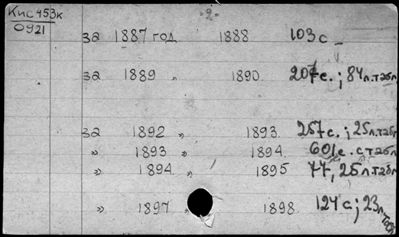 Кис 453к -2-
0921
за 1887 год 1888 103 с.
за 1889 „ 1890 207с.; 84л.табл.
за 1892 „ 1893 257с.; 25л.табл
„ 1893 „ 1894 601с. с табл
„ 1894 „ 1895 77, 25л табл
„ 1897 „ 1898 124 с; 23л табл